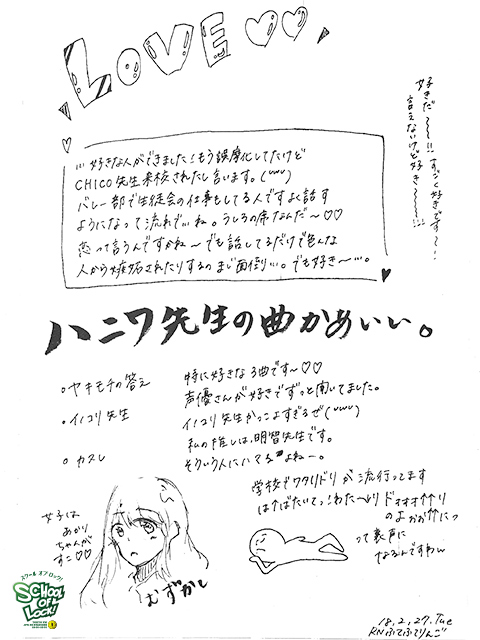 LOVE ♡♡
好きだ〜〜!!すっごく好きです〜!!
言えないけど好き〜〜!!
好きな人ができました!もう誤魔化してたけど
CHICO先生来校されたし言います。(˘˘˘)
バレー部で生徒会の仕事もしてる人ですよく話す
ようになって流れで…ね。うしろの席なんだ〜♡♡
恋って言うんですかね〜でも話してるだけで色んな
人から嫉妬されたりするのまじ面倒…。でも好き〜…。
ハニワ先生の曲かあいい。
。ヤキモチの答え
。イノコリ先生
。カヌレ
特に好きな3曲です〜♡♡
声優さんが好きでずっと聞いてました。
イノコリ先生かっこよすぎるぜ(˘˘˘)
私の推しは、明智先生です。
そういう人にハマるよねー。
学校でワタリドリが流行ってます
はばたいてっ!わた〜どり ドォオオ↑↑り
のよぉぉ↑↑にっ
って裏声に
なるんですわw
女子は
あかり
ちゃんが
すこ♡♡
むずかし
スクール オブ ロック!
SCHOOL OF LOCK!
18.2.27.Tue
RNふてふてりんご